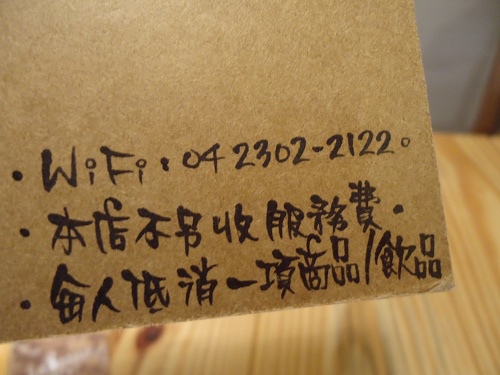 ·WiFi:04 2302-2122。
·本店不另收服務費.
·每人低消一項商品/飲品